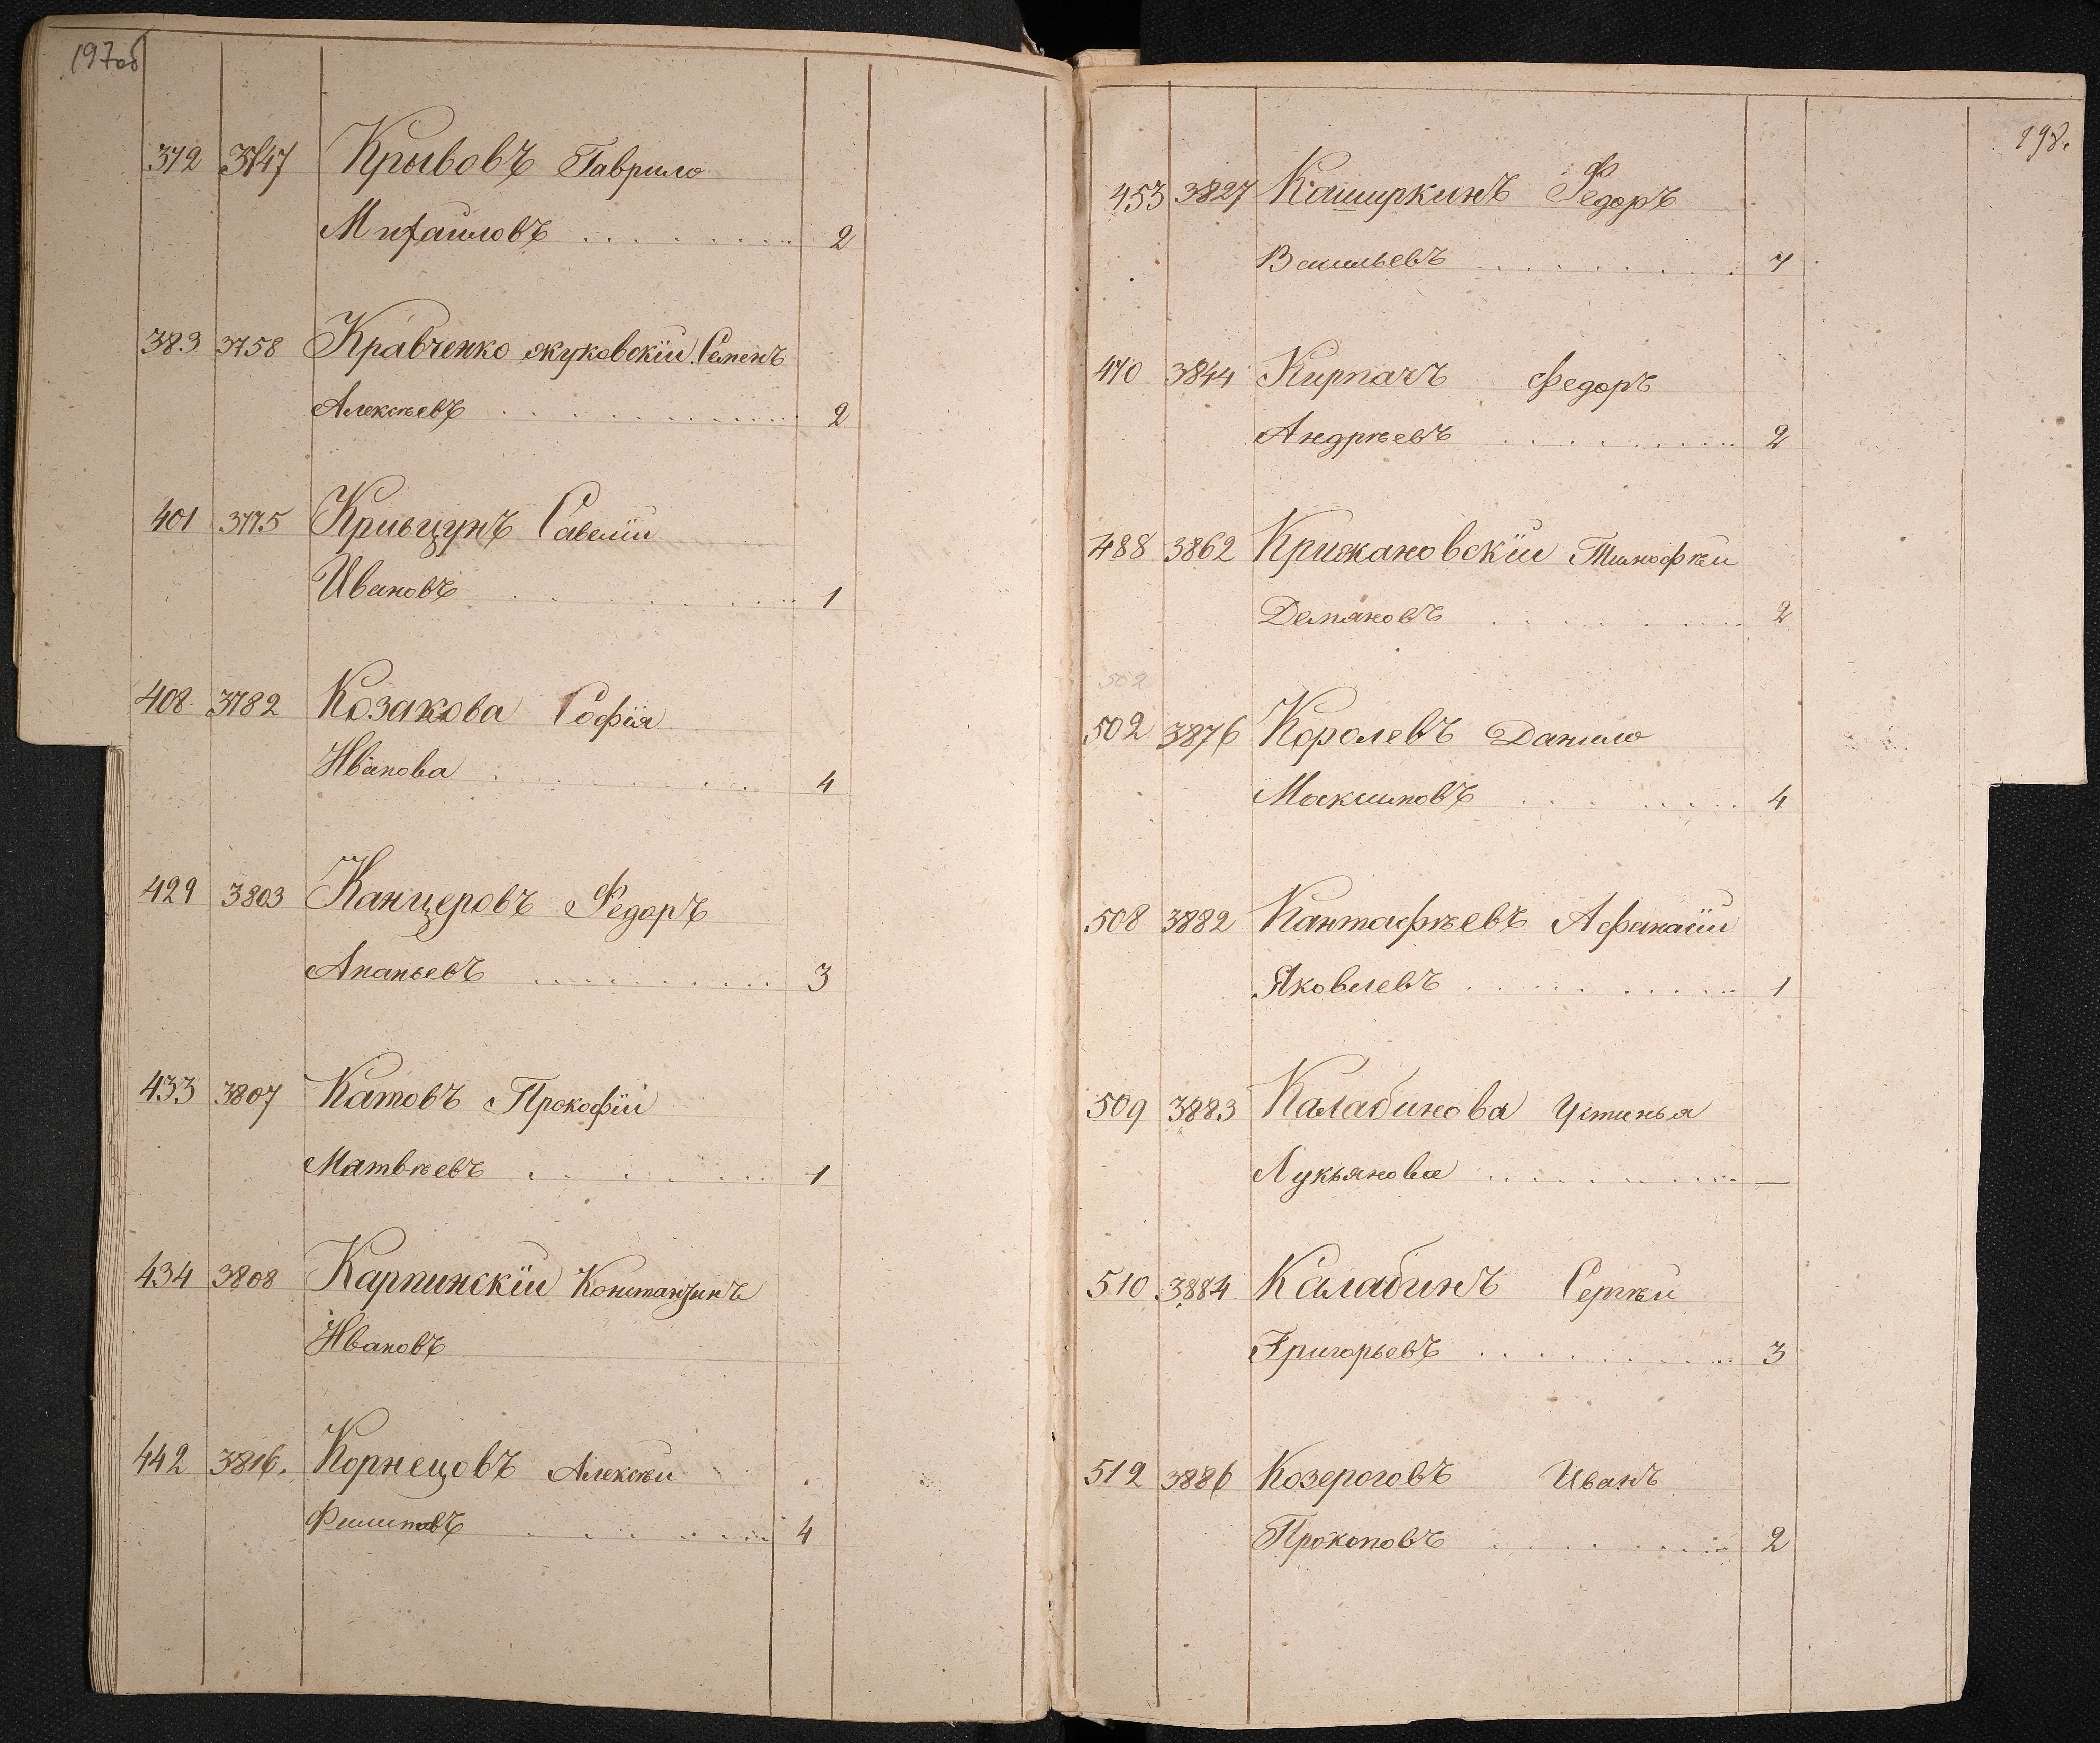 197об
372 3747 Крывовъ Гаврило
Михаиловъ . . . . . . . . 2
383 3758 Кравченко жуковскïи Семенъ
Алексѣевъ . . . . . . . . 2
401 3775 Кривцунъ Савелïи
Ивановъ . . . . . . . . 1
408 3782 Козакова Софïя
Иванова . . . . . . . . 4
429 3803 Канцеровъ Федоръ
Ананьевъ . . . . . . . . 3
433 3807 Катовъ Прокофïи
Матвѣевъ . . . . . . . . 1
434 3808 Карпинскïи Константинъ
Ивановъ
442 3816. Корнецовъ Алексѣи
Филиповъ . . . . . . . . 4
198.
453 3827 Каширкинъ Федоръ
Васильевъ . . . . . . . . 7
470 3844 Кирпачъ Федоръ
Андрѣевъ . . . . . . . . 2
488 3862 Крижановскïи Тимофѣи
Демяновъ . . . . . . . . 2
502
502 3876 Королевъ Данило
Максимовъ . . . . . . . . 4
508 3882 Кантафѣевъ Афанасïи
Яковлевъ . . . . . . . . 1
509 3883 Калабинова Устинья
Лукьянова . . . . . . . . —
510 3884 Калабинъ Сергѣи
Григорьевъ . . . . . . . . 3
512 3886 Козероговъ Иванъ
Прокоповъ . . . . . . . . 2